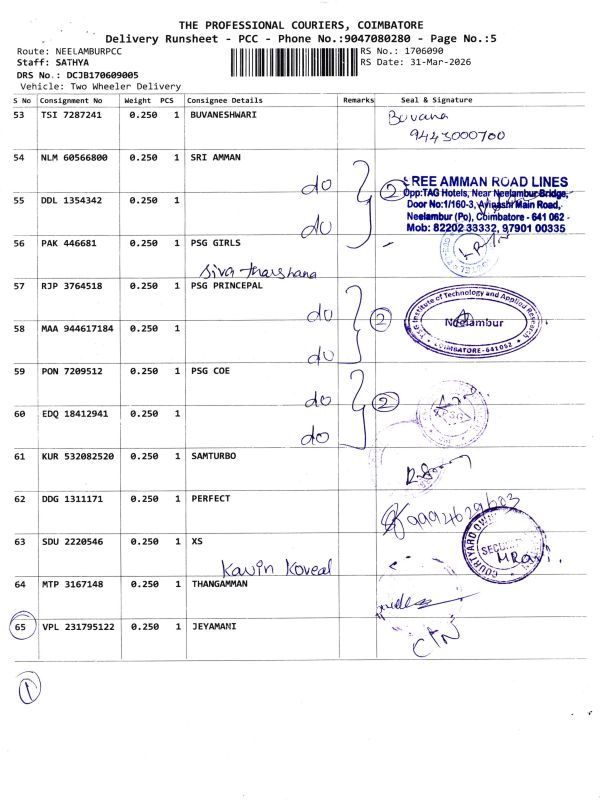 THE PROFESSIONAL COURIERS, COIMBATORE
Delivery Runsheet - PCC - Phone No.:9047080280 - Page No.:5
Route: NEELAMBURPCC
RS No.: 1706090
Staff: SATHYA
RS Date: 31-Mar-2026
DRS No.: DCJB170609005
Vehicle: Two Wheeler Delivery
S No Consignment No Weight PCS Consignee Details Remarks Seal & Signature
53 TSI 7287241 0.250 1 BUVANESHWARI Buvana
9443000700
54 NLM 60566800 0.250 1 SRI AMMAN
do 2 REE AMMAN ROAD LINES
Opp:TAG Hotels, Near Neelambur Bridge,
55 DDL 1354342 0.250 1 Door No:1/160-3, Avinashi Main Road,
do Neelambur (Po), Coimbatore - 641 062
Mob: 82202 33332, 97901 00335
56 PAK 446681 0.250 1 PSG GIRLS
Siva tharshana
57 RJP 3764518 1 0.250 PSG PRINCEPAL
do 2 PSG Institute of Technology and Applied Research
Neelambur
COIMBATORE-641062
58 MAA 944617184 0.250 1
do
59 PON 7209512 0.250 1 PSG COE
do 2
PSG
60 EDQ 18412941 0.250 1
do
61 KUR 532082520 0.250 1 SAMTURBO
62 DDG 1311171 0.250 1 PERFECT
9994629603
63 SDU 2220546 0.250 1 XS
COURTYARD
Kavin Koveal
64 MTP 3167148 0.250 1 THANGAMMAN
65 VPL 231795122 0.250 1 JEYAMANI
1